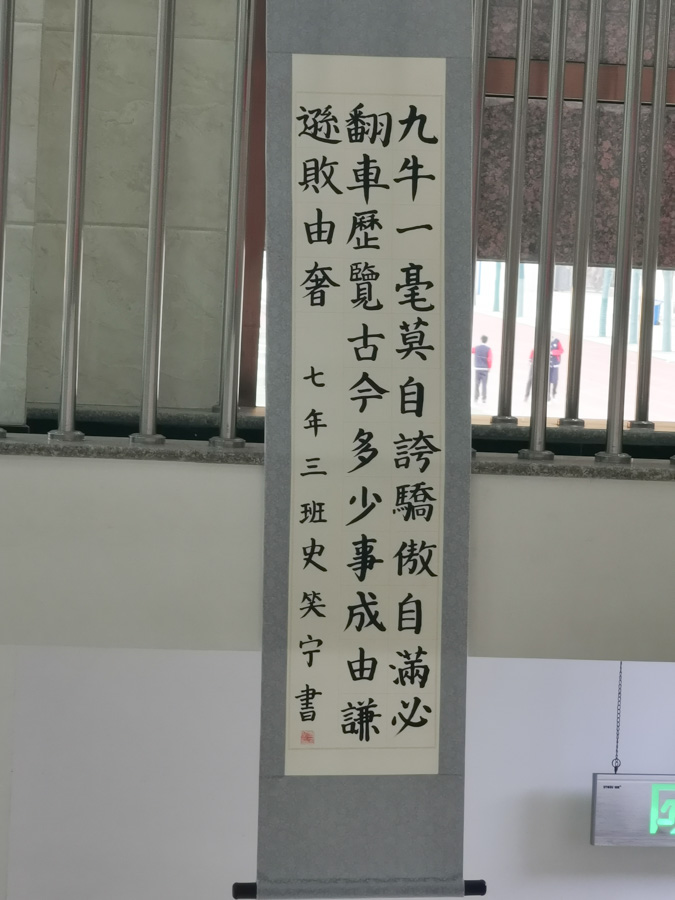 九牛一毫莫自誇驕傲自滿必
翻車歷覽古今多少事成由謙
遜敗由奢
七年三班史笑宁書